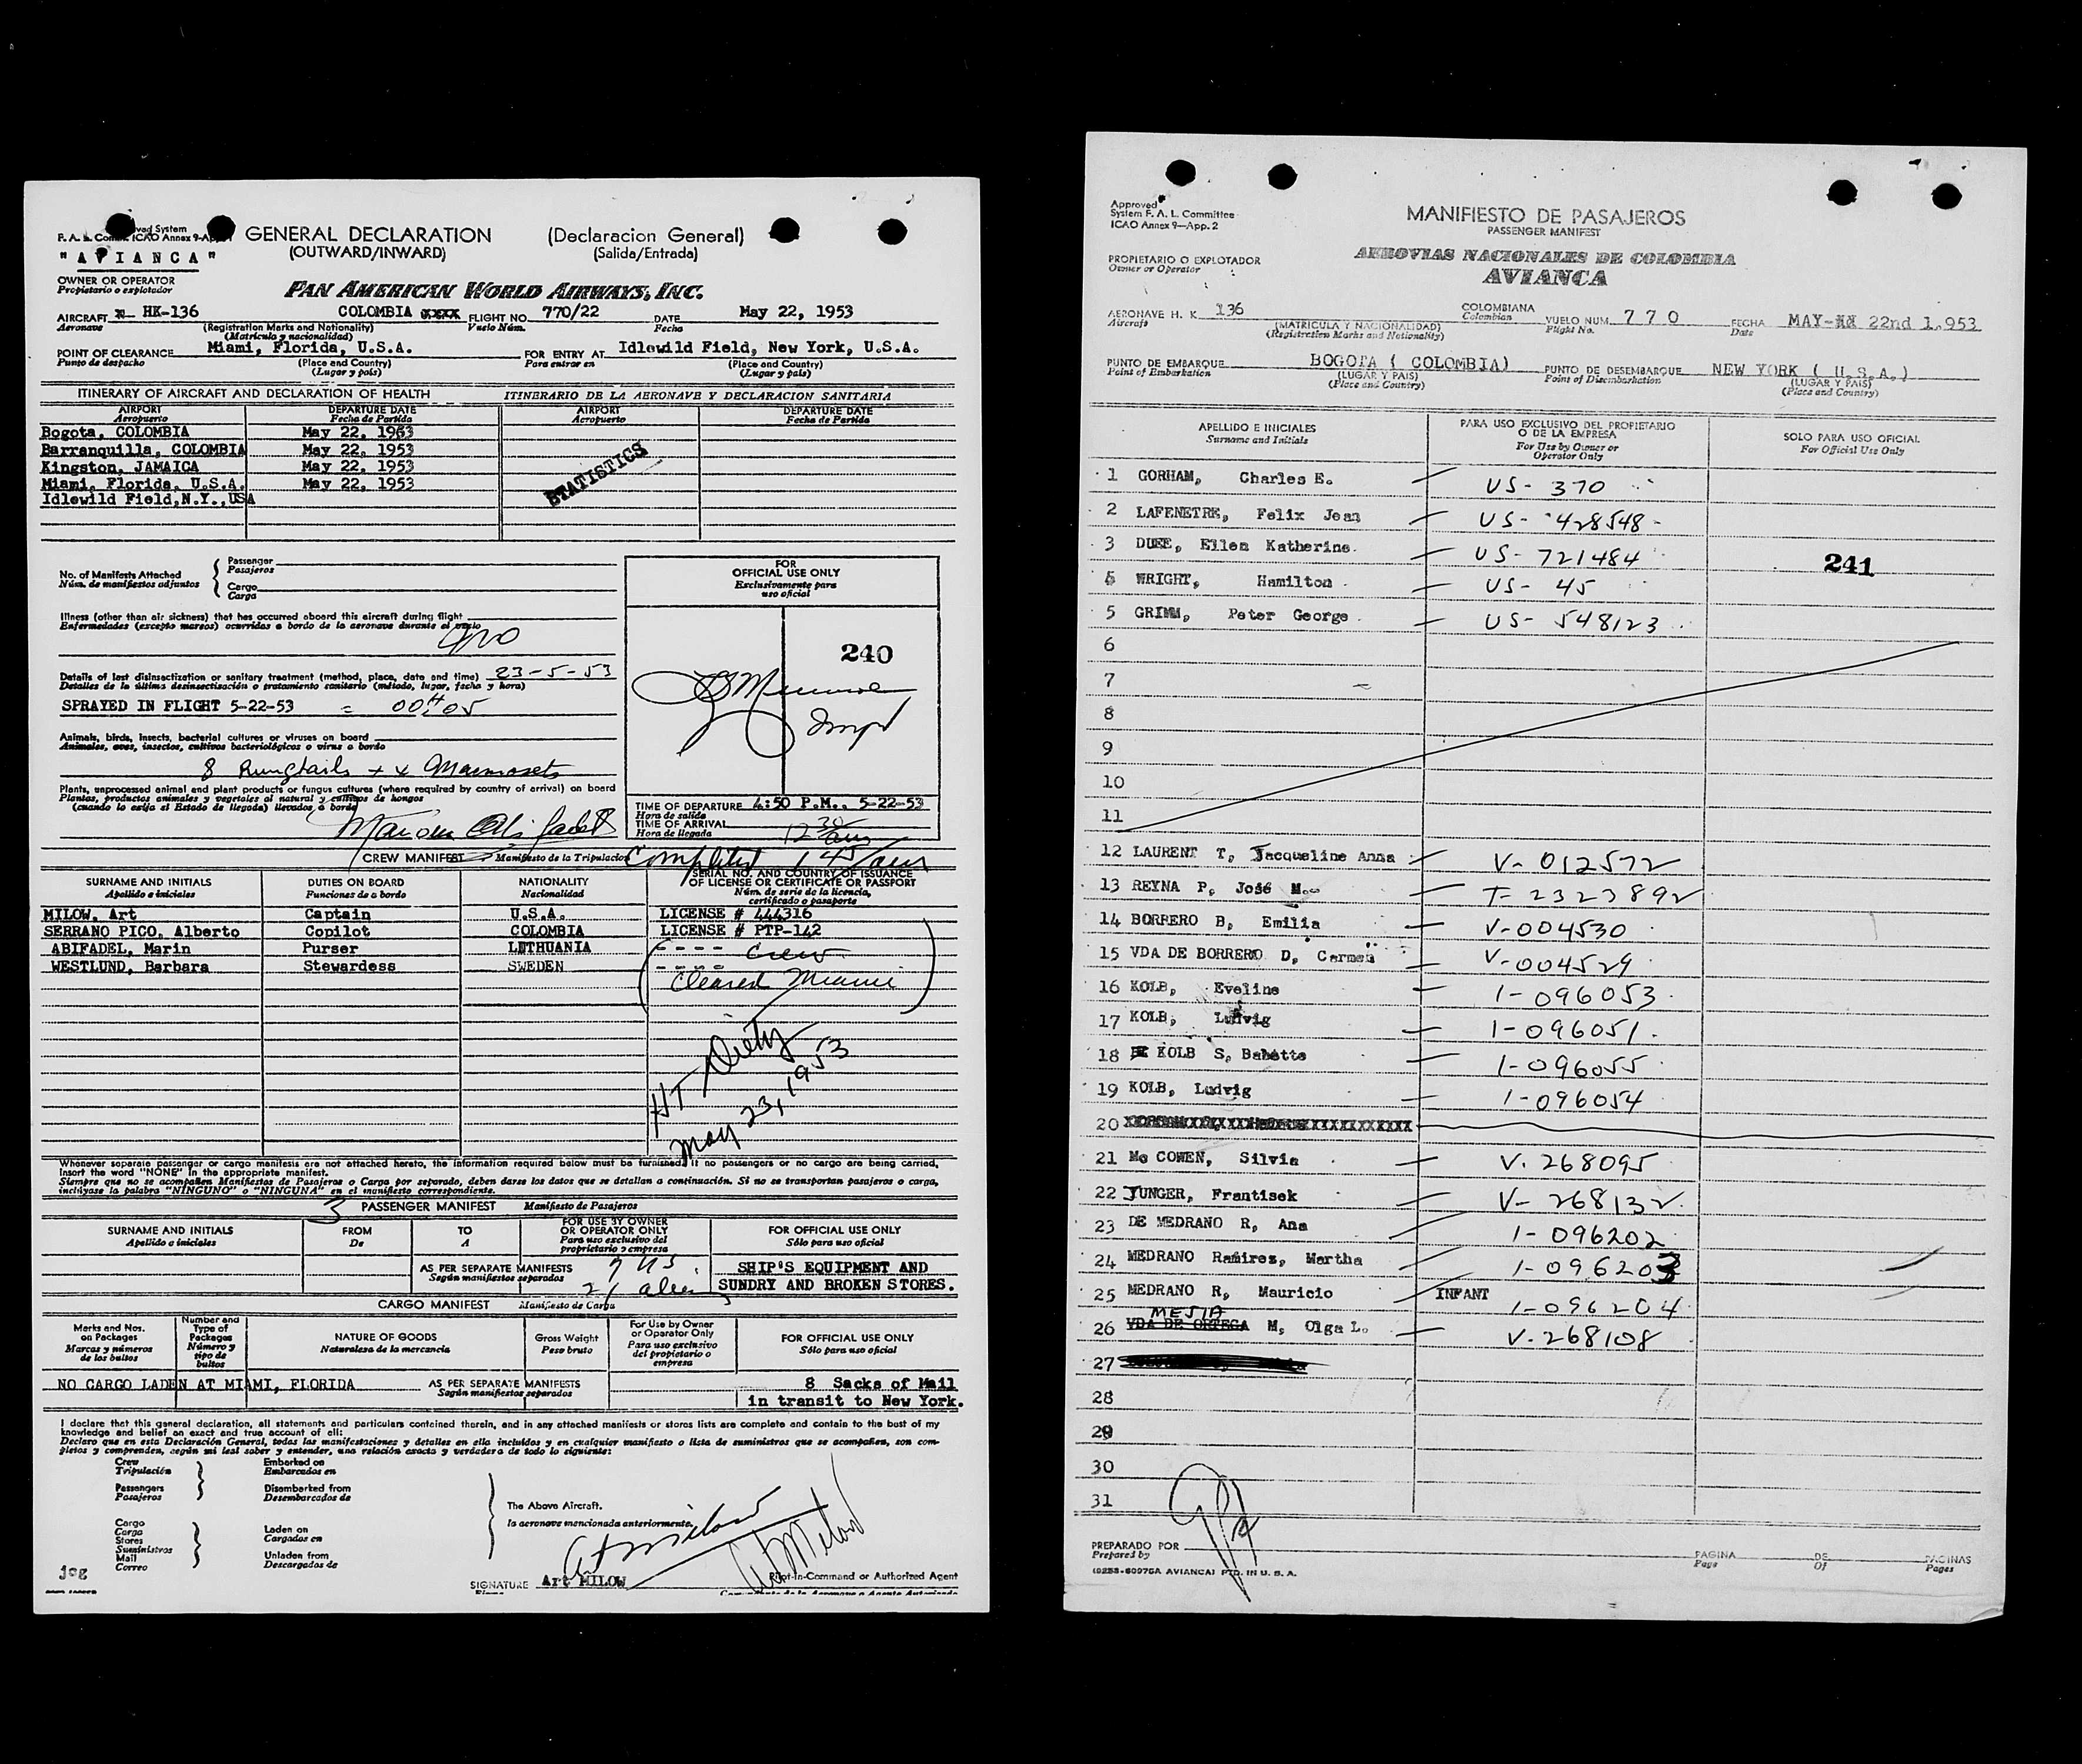 F. A. L. Comm. ICAO Annex 9-App.
ved System
GENERAL DECLARATION (Declaracion General)
(OUTWARD/INWARD) (Salida/Entrada)
"AVIANCA"
OWNER OR OPERATOR
Propietario o explotador
PAN AMERICAN WORLD AIRWAYS, INC.
AIRCRAFT HK-136 COLOMBIA xxxx FLIGHT NO. 770/22 DATE May 22, 1953
Aeronave (Registration Marks and Nationality) Vuelo Núm. Fecha
(Matrícula y nacionalidad)
POINT OF CLEARANCE Miami, Florida, U.S.A. FOR ENTRY AT Idlewild Field, New York, U.S.A.
Punto de despacho (Place and Country) Para entrar en (Place and Country)
(Lugar y país) (Lugar y país)
ITINERARY OF AIRCRAFT AND DECLARATION OF HEALTH ITINERARIO DE LA AERONAVE Y DECLARACION SANITARIA
AIRPORT DEPARTURE DATE AIRPORT DEPARTURE DATE
Aeropuerto Fecha de Partida Aeropuerto Fecha de Partida
Bogota, COLOMBIA May 22, 1953
Barranquilla, COLOMBIA May 22, 1953
Kingston, JAMAICA May 22, 1953
Miami, Florida, U.S.A. May 22, 1953
Idlewild Field, N.Y., USA
STATISTICS
No. of Manifests Attached Passenger
Núm. de manifiestos adjuntos Pasajeros
Cargo
Carga
Illness (other than air sickness) that has occurred aboard this aircraft during flight
Enfermedades (excepto mareos) ocurridas a bordo de la aeronave durante el vuelo
no
Details of last disinsectization or sanitary treatment (method, place, date and time) 23-5-53
Detalles de la última desinsectización o tratamiento sanitario (método, lugar, fecha y hora)
SPRAYED IN FLIGHT 5-22-53 = 00:05
Animals, birds, insects, bacterial cultures or viruses on board
Animales, aves, insectos, cultivos bacteriológicos o virus a bordo
8 Rungtails + x Marmosets
Plants, unprocessed animal and plant products or fungus cultures (where required by country of arrival) on board
Plantas, productos animales y vegetales al natural y cultivos de hongos
(cuando lo exija el Estado de llegada) llevados a bordo
FOR
OFFICIAL USE ONLY
Exclusivamente para
uso oficial
240
TIME OF DEPARTURE 4:50 P.M., 5-22-53
Hora de salida
TIME OF ARRIVAL 12 30 am
Hora de llegada
CREW MANIFEST Manifiesto de la Tripulacion Completed 1 45/am
SURNAME AND INITIALS DUTIES ON BOARD NATIONALITY SERIAL NO. AND COUNTRY OF ISSUANCE
OF LICENSE OR CERTIFICATE OR PASSPORT
Apellido e iniciales Funciones de a bordo Nacionalidad Núm. de serie de la licencia,
certificado o pasaporte
MILOW, Art Captain U.S.A. LICENSE # 444316
SERRANO PICO, Alberto Copilot COLOMBIA LICENSE # PTP-142
ABIFADEL, Marin Purser LETHUANIA ---- Crew
WESTLUND, Barbara Stewardess SWEDEN ---- Cleared Miami
May 23, 1953
Whenever separate passenger or cargo manifests are not attached hereto, the information required below must be furnished. If no passengers or no cargo are being carried,
insert the word "NONE" in the appropriate manifest.
Siempre que no se acompañen Manifiestos de Pasajeros o Carga por separado, deben darse los datos que se detallan a continuación. Si no se transportan pasajeros o carga,
inclúyase la palabra "NINGUNO" o "NINGUNA" en el manifiesto correspondiente.
3 PASSENGER MANIFEST Manifiesto de Pasajeros
SURNAME AND INITIALS FROM TO FOR USE BY OWNER FOR OFFICIAL USE ONLY
OR OPERATOR ONLY
Apellido e iniciales De A Para uso exclusivo del Sólo para uso oficial
proprietario o empresa
AS PER SEPARATE MANIFESTS SHIP'S EQUIPMENT AND
Según manifiestos separados 21 aliens SUNDRY AND BROKEN STORES.
CARGO MANIFEST Manifiesto de Carga
Marks and Nos. on Packages
Marcas y números de los bultos
Number and Type of Packages
Número y tipo de bultos
NATURE OF GOODS
Naturaleza de la mercancia
Gross Weight
Peso bruto
For Use by Owner or Operator Only
Para uso exclusivo del propietario o empresa
FOR OFFICIAL USE ONLY
Sólo para uso oficial
NO CARGO LADEN AT MIAMI, FLORIDA AS PER SEPARATE MANIFESTS 8 Sacks of Mail
Según manifiestos separados in transit to New York.
I declare that this general declaration, all statements and particulars contained therein, and in any attached manifests or stores lists are complete and contain to the best of my
knowledge and belief an exact and true account of all:
Declaro que en esta Declaración General, todas las manifestaciones y detalles en ella incluidos y en cualquier manifiesto o lista de suministros que se acompañen, son com-
pletos y comprenden, según mi leal saber y entender, una relación exacta y verdadera de todo lo siguiente:
Crew Embarked on
Tripulación Embarcados en
Passengers Disembarked from
Pasajeros Desembarcados de
The Above Aircraft.
la aeronave mencionada anteriormente.
Cargo Laden on
Carga Cargados en
Stores
Suministros
Mail Unladen from
Correo Descargados de
jcg
SIGNATURE Art MILOW Pilot-in-Command or Authorized Agent
Art Milow
Art Milow
Approved
System F. A. L. Committee
ICAO Annex 9—App. 2
MANIFIESTO DE PASAJEROS
PASSENGER MANIFEST
PROPIETARIO O EXPLOTADOR
Owner or Operator
AEROVIAS NACIONALES DE COLOMBIA
AVIANCA
AERONAVE H. K. 136 COLOMBIANA VUELO NUM. 770 FECHA MAY-xx 22nd 1.953
Aircraft (MATRICULA Y NACIONALIDAD) Colombian Flight No. Date
(Registration Marks and Nationality)
PUNTO DE EMBARQUE BOGOTA ( COLOMBIA) PUNTO DE DESEMBARQUE NEW YORK ( U.S.A.)
Point of Embarkation (LUGAR Y PAIS) Point of Disembarkation (LUGAR Y PAIS)
(Place and Country) (Place and Country)
APELLIDO E INICIALES PARA USO EXCLUSIVO DEL PROPIETARIO SOLO PARA USO OFICIAL
O DE LA EMPRESA
Surname and Initials For Use by Owner or For Official Use Only
Operator Only
1 GORHAM, Charles E. US- 370
2 LAFENETRE, Felix Jean US- 428548
3 DUKE, Ellen Katherine. US- 721484
241
5 WRIGHT, Hamilton US- 45
5 GRIMM, Peter George US- 548123
6
7
8
9
10
11
12 LAURENT T, Jacqueline Anna V- 012572
13 REYNA P, José M. T- 2323892
14 BORRERO B, Emilia V-004530
15 VDA DE BORRERO D, Carmen V-004529
16 KOLB, Eveline 1-096053
17 KOLB, Ludvig 1-096051
18 KOLB S, Babette 1-096055
19 KOLB, Ludvig 1-096054
20
21 Mc COWEN, Silvia V. 268095
22 JUNGER, Frantisek V- 268132
23 DE MEDRANO R, Ana 1- 096202
24 MEDRANO Ramirez, Martha 1-096203
25 MEDRANO R, Mauricio INFANT 1-096204
26 VDA DE ORTEGA MEJIA M, Olga L. V.268108
27
28
29
30
31
PREPARADO POR PAGINA DE PAGINAS
Prepared by Page Of Pages
(0258-60976A AVIANCA) PTD. IN U. S. A.